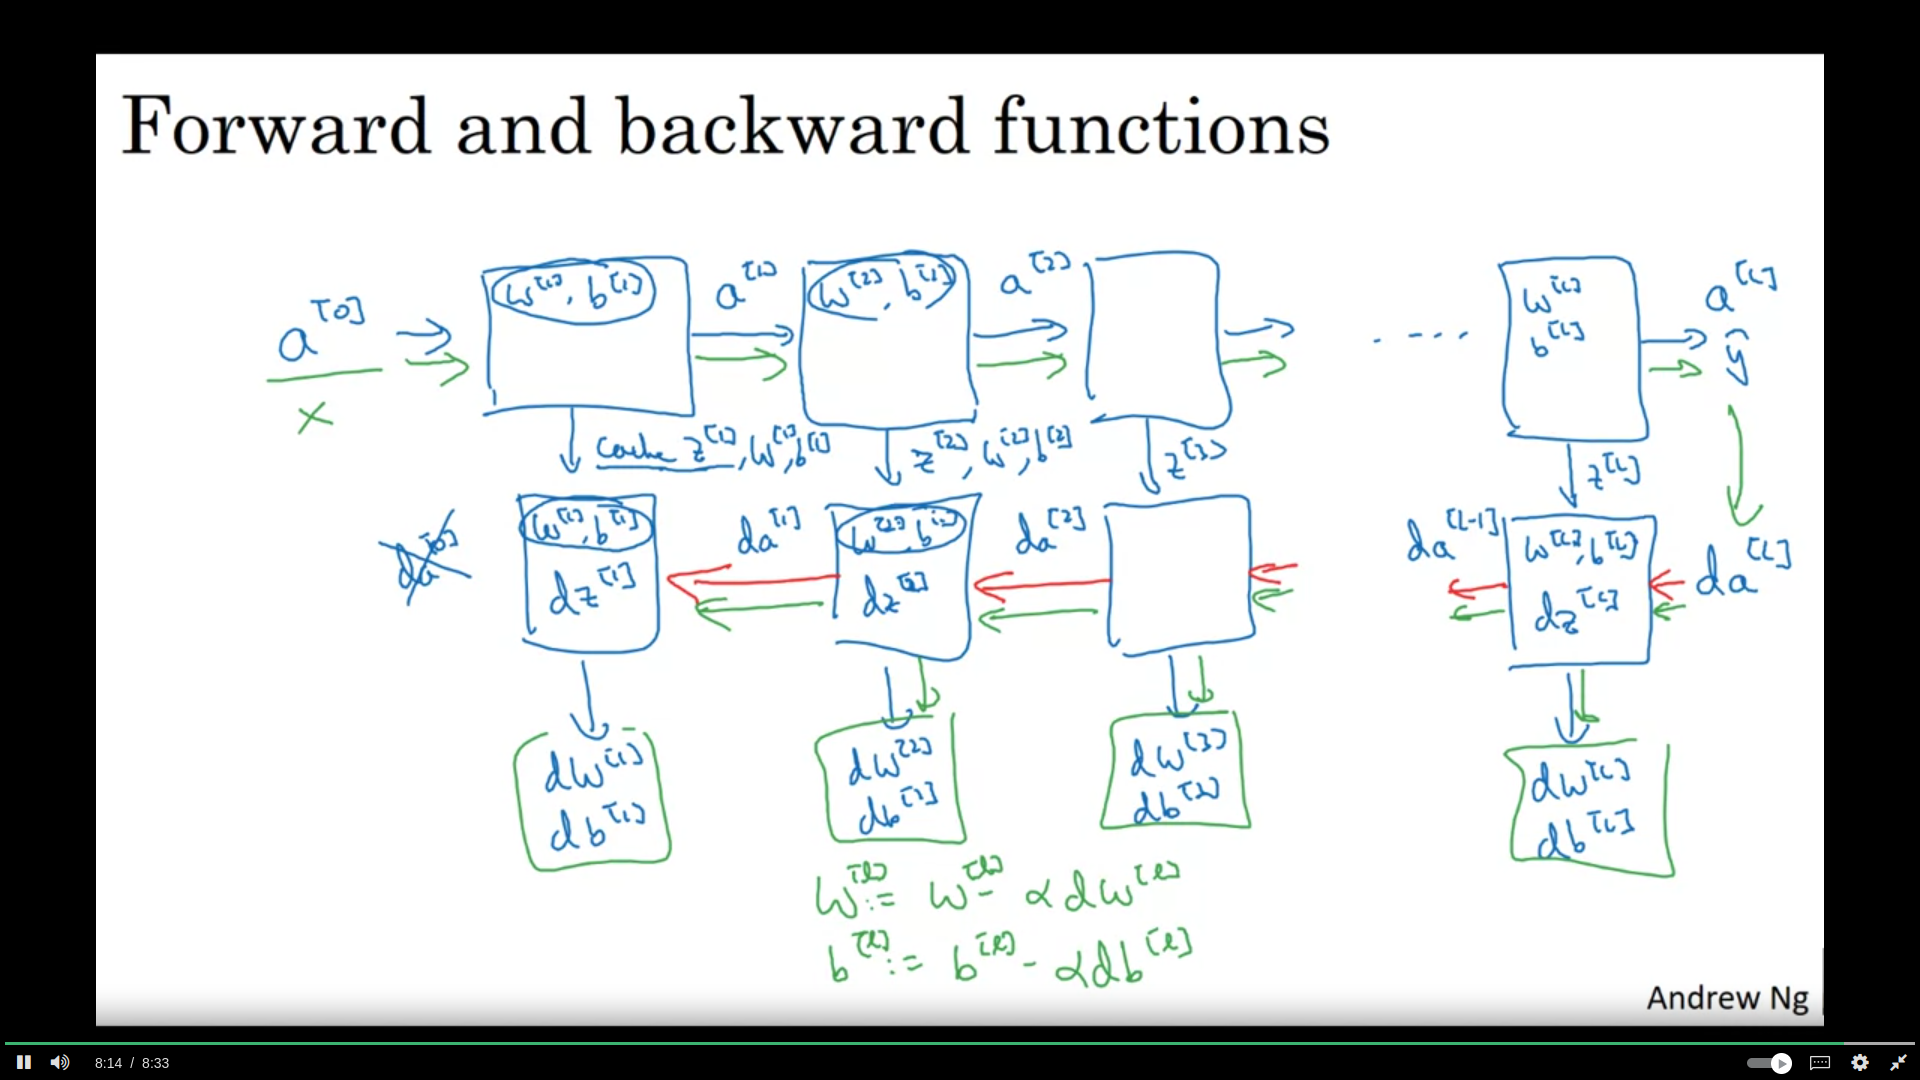 Forward and backward functions
a^[0] w^[1], b^[1] a^[1] w^[2], b^[1] a^[2] .... w^[L] a^[L]
b^[L] ŷ
x
cache z^[1], w^[1], b^[1] z^[2], w^[2], b^[2] z^[3] z^[L]
da^[0] w^[1], b^[1] da^[1] w^[2], b^[2] da^[2] da^[L-1] w^[L], b^[L] da^[L]
dz^[1] dz^[2] dz^[L]
dw^[1] dw^[2] dw^[3] dw^[L]
db^[1] db^[2] db^[2] db^[L]
w^[l] := w^[l] - αdw^[l]
b^[l] := b^[l] - αdb^[l]
Andrew Ng
8:14 / 8:33